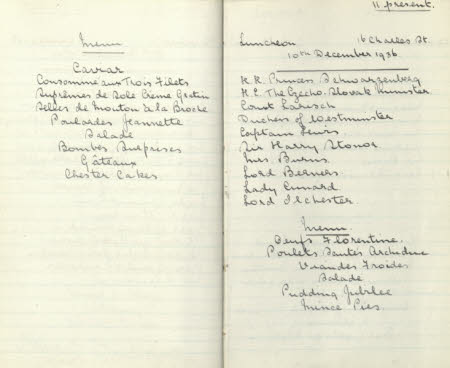 Menu
Caviar
Consommé aux Trois Filets
Suprêmes de Sole Crème Gratin
Selles de Mouton à la Broche
Poulardes Jeannette
Salade
Bombes Surprises
Gâteaux
Chester Cakes
11 present.
Luncheon 16 Charles St.
10th December 1936
H.H. Princess Schwarzenberg
H.E. The Czecho-Slovak Minister
Count Larisch
Duchess of Westminster
Captain
Sir Harry Stonor
Mrs Burns
Lord Berners
Lady Cunard
Lord Ilchester
Menu
Oeufs Florentine.
Poulets Sautés Archiduc
Viandes Froides
Salade
Pudding Jubilee
Mince Pies